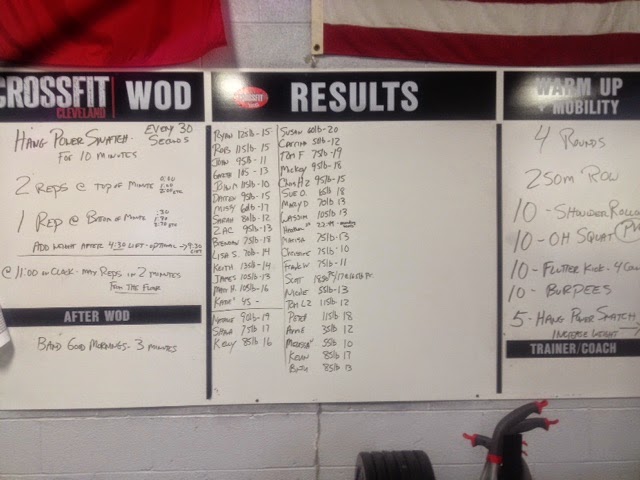 CROSSFIT
CLEVELAND
WOD
HANG POWER SNATCH - EVERY 30 SECONDS
FOR 10 MINUTES
2 REPS @ TOP OF MINUTE 0:00
1:00
1 REP @ BOTTOM OF MINUTE :30
1:30
2:30 ETC
ADD WEIGHT AFTER 4:30 LIFT - OPTIONAL → 9:30
@ 11:00 ON CLOCK - MAX REPS IN 2 MINUTES
FROM THE FLOOR
AFTER WOD
BAND GOOD MORNINGS - 3 MINUTES
CROSSFIT
RESULTS
RYAN 125lb - 15
ROB 115lb - 15
JOHN 95lb - 11
105 - 13
115lb - 10
95lb - 15
MISSY 60lb - 17
SARAH 80lb - 12
ZAC 95lb - 13
BRENDAN 75lb - 18
LISA S. 70lb - 14
KEITH 135lb - 14
JAMES 105lb - 13
MATT H. 105lb - 16
KATIE 45 -
NATALIE 90lb - 19
SHANA 75lb 17
KELLY 85lb 16
SUSAN 60lb - 20
50lb - 12
TOM F 75lb - 19
MICKEY 95lb 18
CHRIS HZ 95lb - 15
SUE O. 65lb 18
MARY D 70lb 13
WASSIM 105lb 13
HEATHER
MARISA 75lb 13
CHRISTINE 75lb 10
FRANK W 75lb - 11
SCOTT
NICOLE 55lb 13
TOM L2 115lb 12
PETER 115lb 18
ANNIE 35lb 12
MELISSA 55lb 10
KEVIN 85lb 17
BETH 85lb 13
WARM UP
+ MOBILITY
4 ROUNDS
250m ROW
10 - SHOULDER ROLLS
10 - OH SQUAT (PVC
10 - FLUTTER KICK - 4 COUNT
10 - BURPEES
5 - HANG POWER SNATCH
INCREASE WEIGHT
TRAINER/COACH